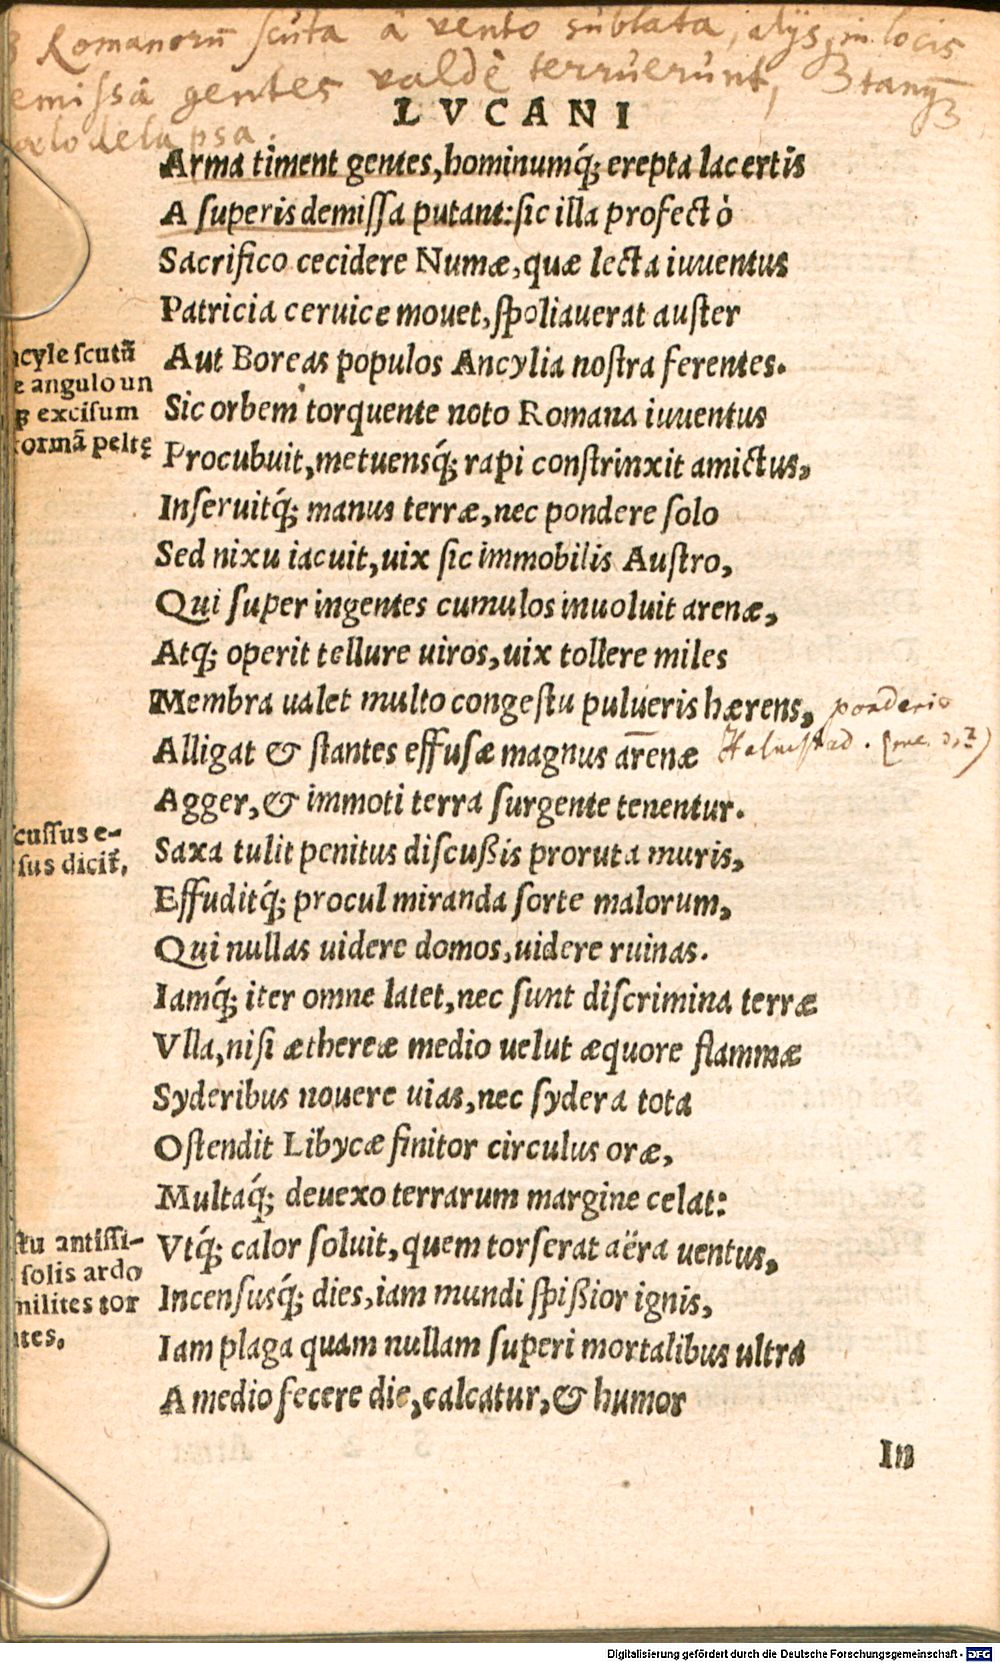 Romanorū scuta à vento sublata, alijs in locis
emissa gentes valdè terruerunt, tanq̃
cœlo delapsa.
LVCANI
Arma timent gentes, hominumq́; erepta lacertis
A superis demissa putant: sic illa profectò
Sacrifico cecidere Numæ, quæ lecta iuuentus
Patricia ceruice mouet, spoliauerat auster
Aut Boreas populos Ancylia nostra ferentes.
ncyle scutũ
e angulo un
q; excisum
formã peltę
Sic orbem torquente noto Romana iuuentus
Procubuit, metuensq́; rapi constrinxit amictus,
Inseruitq́; manus terræ, nec pondere solo
Sed nixu iacuit, uix sic immobilis Austro,
Qui super ingentes cumulos inuoluit arenæ,
Atq; operit tellure uiros, uix tollere miles
Membra ualet multo congestu pulueris hærens, ponderis
Alligat & stantes effusæ magnus arenæ
Agger, & immoti terra surgente tenentur.
Saxa tulit penitus discußis proruta muris,
scussus e-
sus dicit̃,
Effuditq́; procul miranda sorte malorum,
Qui nullas uidere domos, uidere ruinas.
Iamq́; iter omne latet, nec sunt discrimina terræ
Vlla, nisi æthereæ medio uelut æquore flammæ
Syderibus nouere uias, nec sydera tota
Ostendit Libycæ finitor circulus oræ,
Multaq́; deuexo terrarum margine celat:
Vtq́; calor soluit, quem torserat aëra uentus,
stu antissi-
solis ardo
milites tor
ntes.
Incensusq́; dies, iam mundi spißior ignis,
Iam plaga quam nullam superi mortalibus ultra
A medio fecere die, calcatur, & humor
In
Digitalisierung gefördert durch die Deutsche Forschungsgemeinschaft - DFG